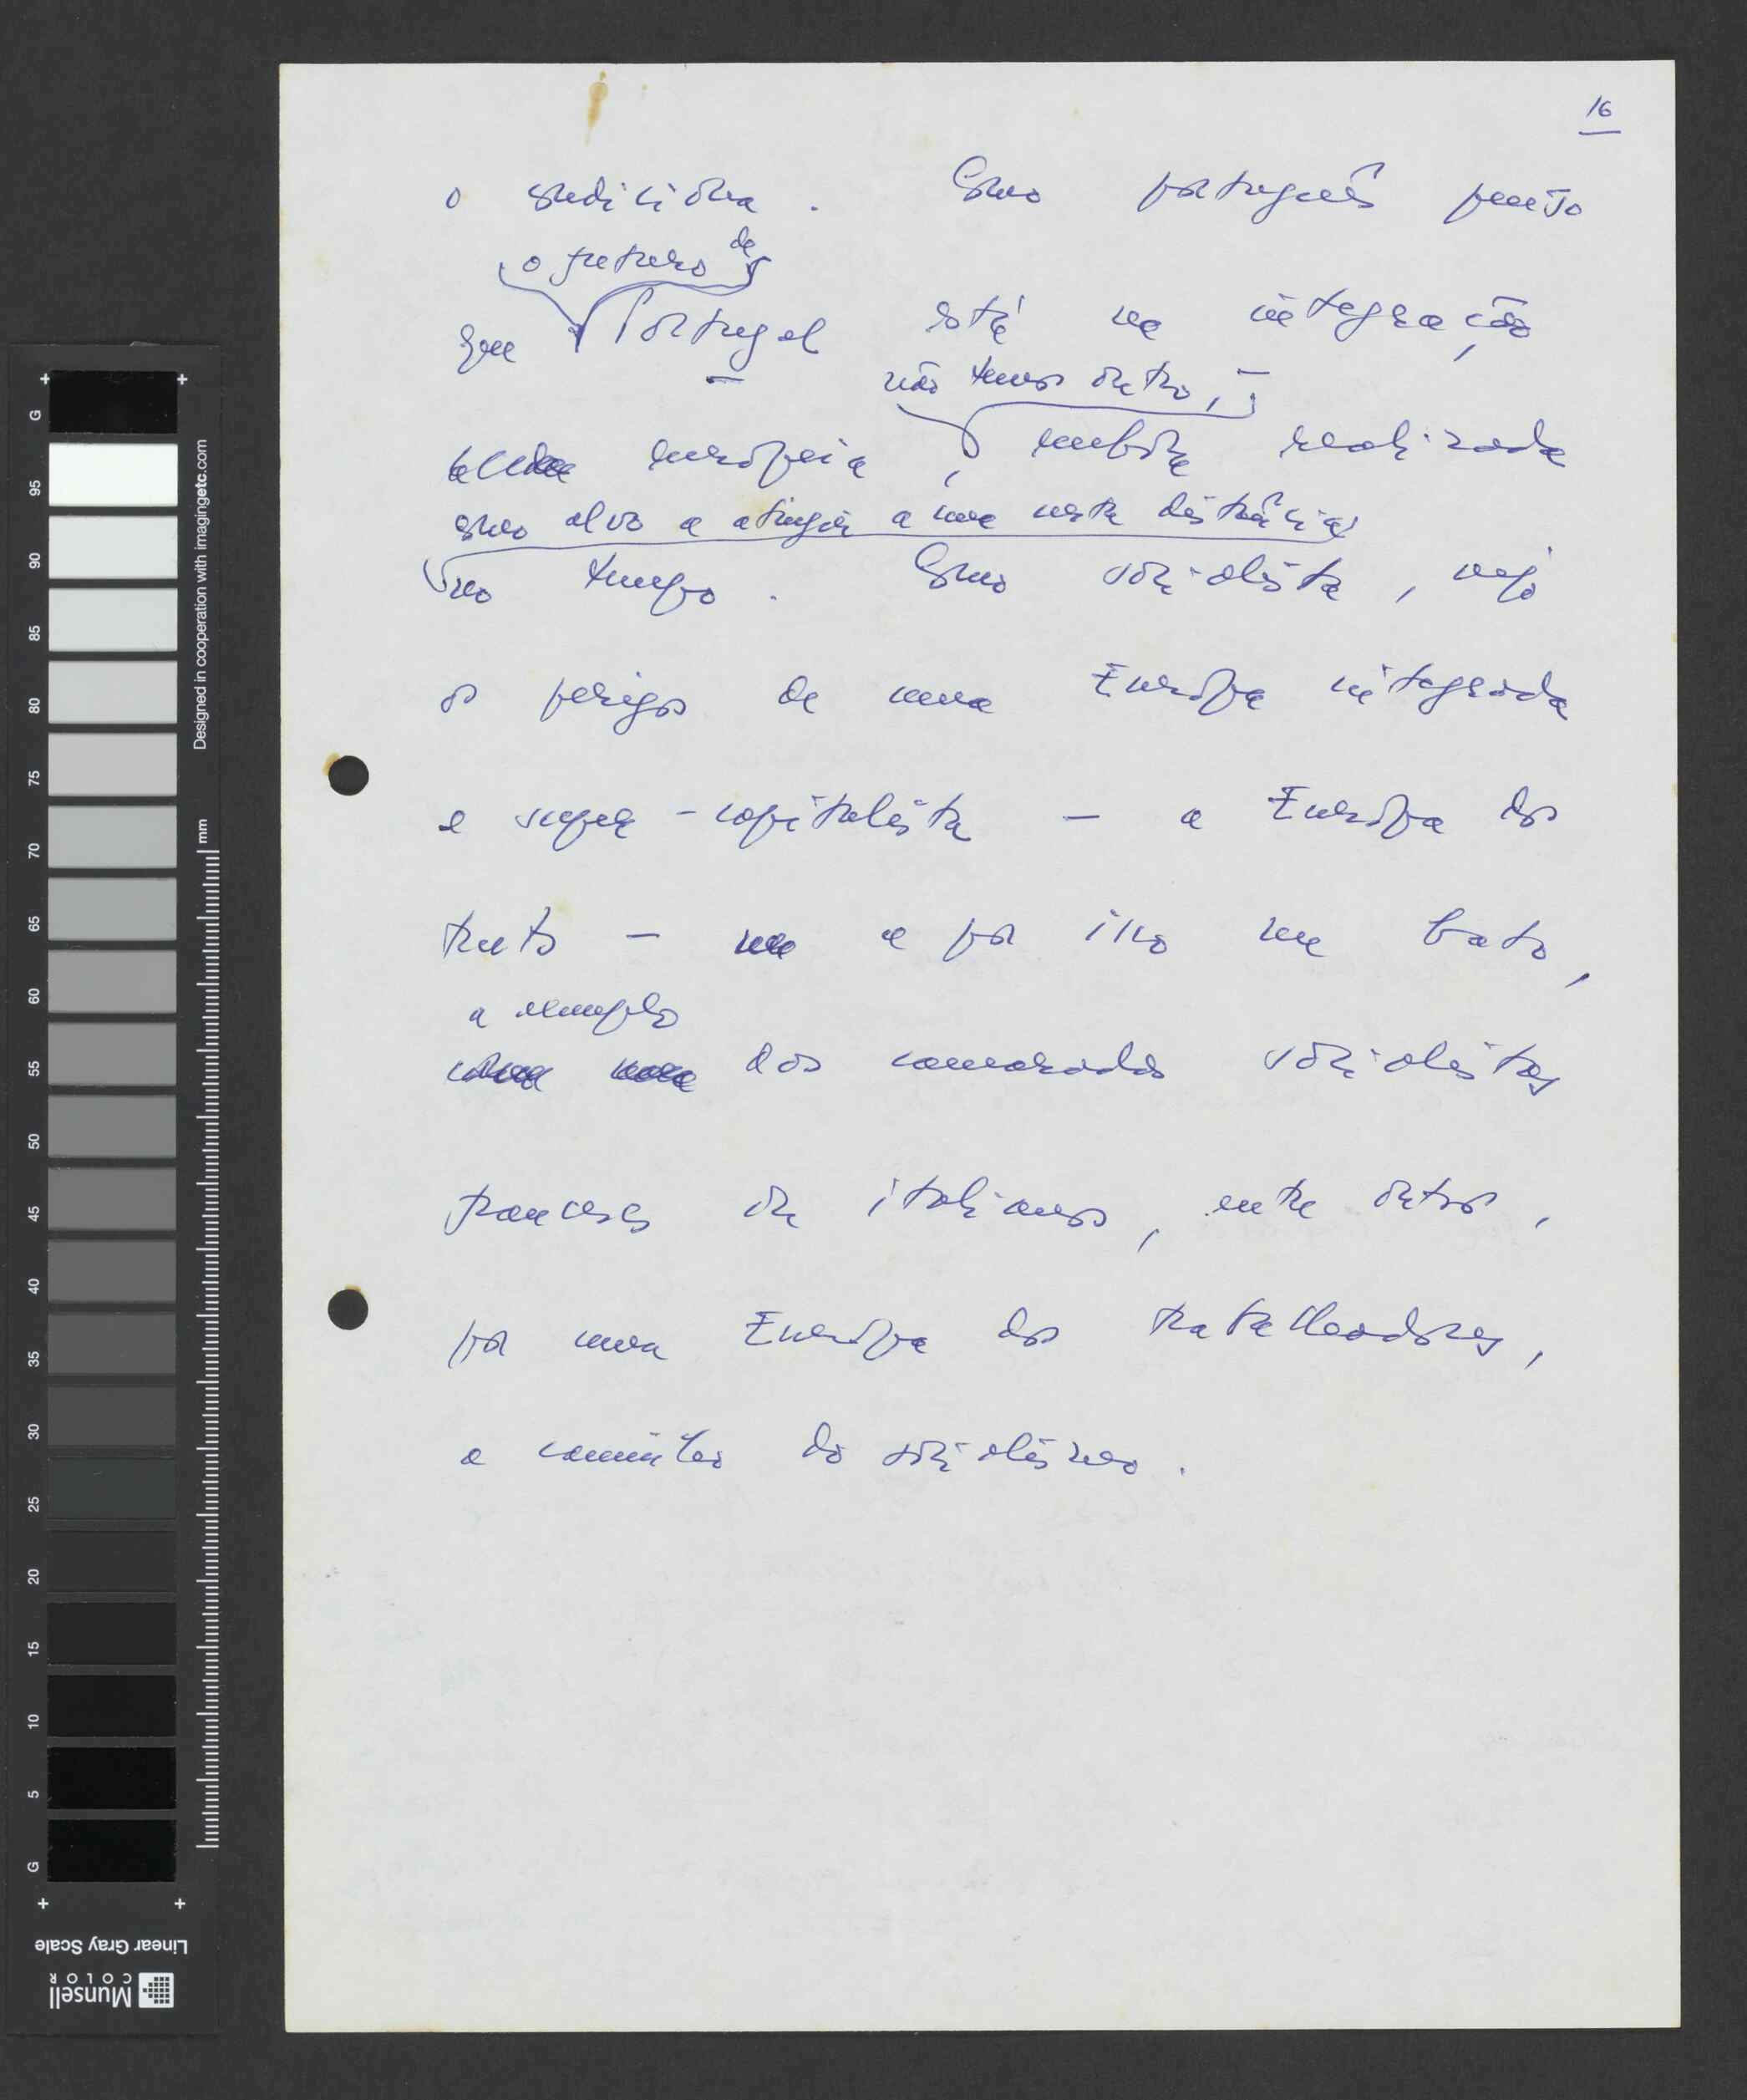 16
o condiciona. Como português penso
o futuro de
que Portugal está na integração
não temos outro,
europeia, embora realizada
como alvo a atingir a uma certa distância
no tempo. Como socialista, vejo
os perigos de uma Europa integrada
e super-capitalista — a Europa dos
trusts — e por isso me bato,
a exemplo
dos camaradas socialistas
franceses ou italianos, entre outros,
por uma Europa dos trabalhadores,
a caminho do socialismo.
G
95
90
85
80
75
70
65
60
55
50
45
40
35
30
25
20
15
10
5
G
Designed in cooperation with imagingetc.com
mm
Linear Gray Scale
Munsell
COLOR